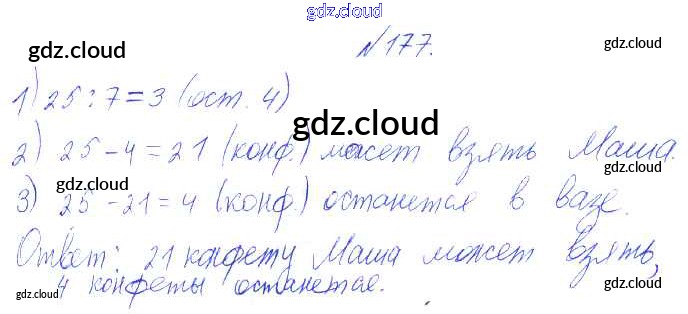 gdz.cloud
№177.
gdz.cloud gdz.cloud
1) 25 : 7 = 3 (ост. 4)
gdz.cloud
2) 25 - 4 = 21 (конф.) может взять Маша.
gdz.cloud gdz.cloud
3) 25 - 21 = 4 (конф.) останется в вазе.
Ответ: 21 конфету Маша может взять,
gdz.cloud gdz.cloud gdz.cloud
4 конфеты останется.